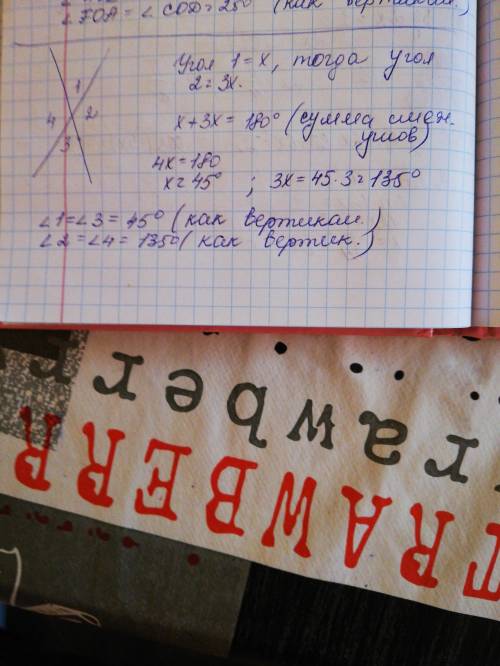 ∠FOA = ∠COD = 25° (как вертикал.)
1
4 2
3
Угол 1 = x, тогда угол
2 = 3x.
x + 3x = 180° (сумма смеж.
углов)
4x = 180
x = 45° ; 3x = 45 · 3 = 135°
∠1 = ∠3 = 45° (как вертикал.)
∠2 = ∠4 = 135° (как вертик.)
rawberr
rawberr
TRAWBERR